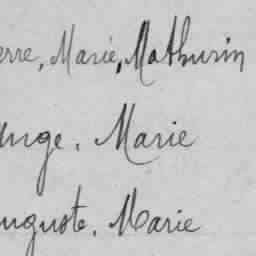 erre, Marie, Mathurin
Ange, Marie
uguste, Marie